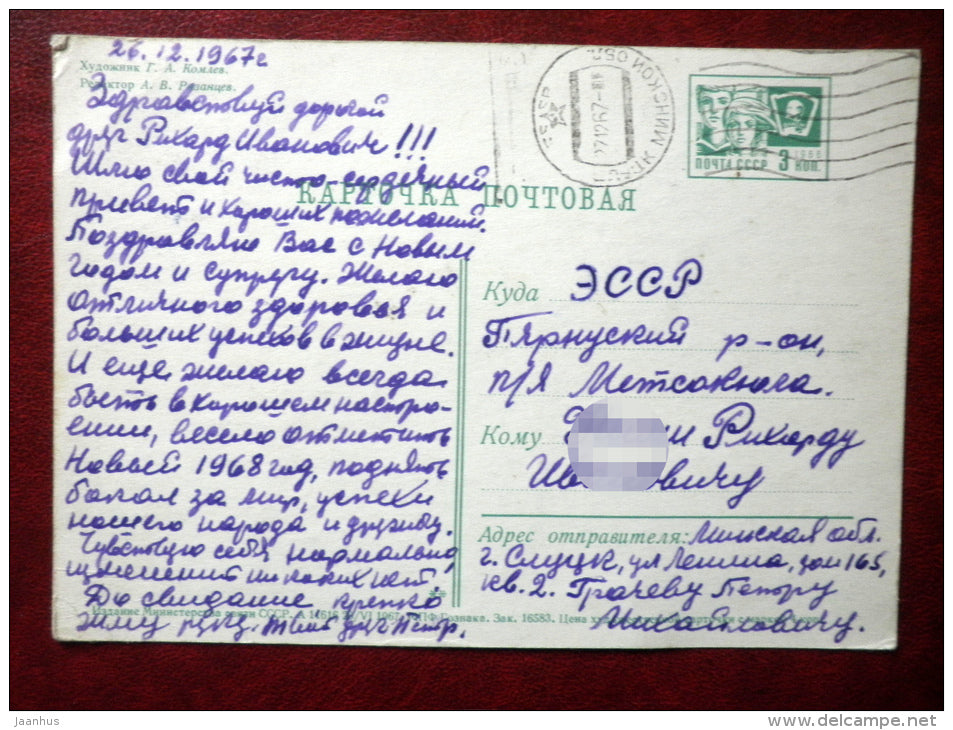 26.12.1967г
Художник Г. А. Комлев.
Редактор А. В. Рязанцев.
Здравствуй дорогой
друг Рихард Иванович!!!
Шлю свой чисто-сердечный
привет и хороших пожеланий.
Поздравляю Вас с Новым
годом и супругу. Желаю
отличного здоровья и
больших успехов в жизне.
И еще желаю всегда
быть в хорошем настро-
ении, весело отметить
Новый 1968 год, поднять
бокал за мир, успехи
нашего народа и дружбу.
Чувствую себя нормально,
изменений никаких нет.
До свидание крепко
жму руку. твой друг Петр.
КАРТОЧКА ПОЧТОВАЯ
ПОЧТА СССР 3 КОП.
1966
СССР
271267
МИНСКОЙ ОБЛ
Куда ЭССР
Пярнуский р-он,
п/я Метсакюла.
Кому Рихарду
Адрес отправителя: Минская обл.
г. Слуцк, ул Ленина, дом 165,
кв. 2. Грачеву Петру
Михайловичу.
Издание Министерства связи СССР. 1967 Гознака. Зак. 16583. Цена
Jaanhus
delcampe.net